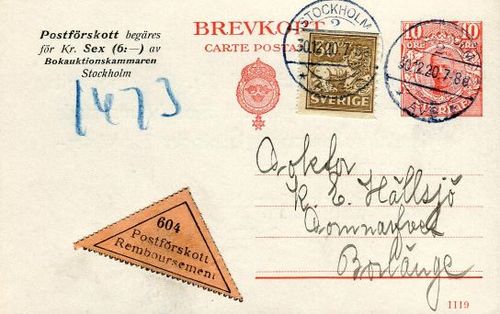 Postförskott begäres
för Kr. Sex (6:—) av
Bokauktionskammaren
Stockholm
1473
BREVKORT
CARTE POSTALE
STOCKHOLM
2
30.12.20.7-8
SVERIGE
10 10
ÖRE
2
30.12.20.7-8
Doktor
K. E. Hällsjö
Domnarfvet
Borlänge
604
Postförskott
Remboursement
1119